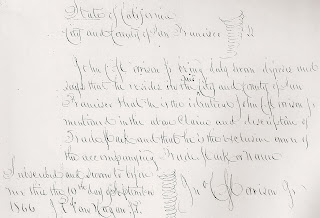 State of California
City and County of San Francisco } SS
John C. Morrison Jr being duly sworn deposes and
says that he resides in the City and County of San
Francisco that he is the identical John C. Morrison Jr
mentioned in the above Claim and description of
Trade Mark and that he is the exclusive owner of
the accompanying Trade Mark or Name
Subscribed and sworn to before
me this the 19th day of September
1866
Jno C Morrison Jr.